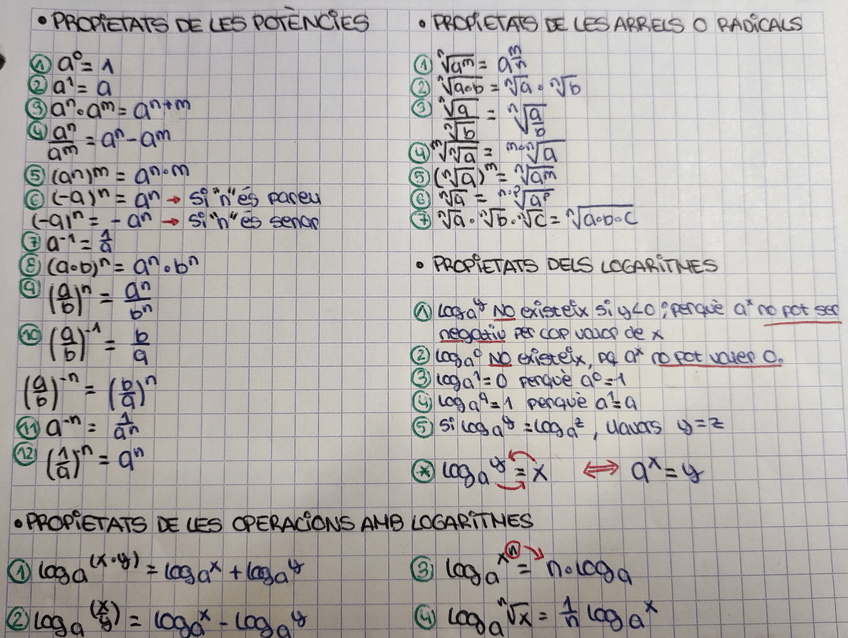 • PROPIETATS DE LES POTÈNCIES
① a⁰ = 1
② a¹ = a
③ aⁿ · aᵐ = aⁿ⁺ᵐ
④ aⁿ/aᵐ = aⁿ - aᵐ
⑤ (aⁿ)ᵐ = aⁿ·ᵐ
⑥ (-a)ⁿ = aⁿ → si "n" és parell
(-a)ⁿ = -aⁿ → si "n" és senar
⑦ a⁻¹ = 1/a
⑧ (a·b)ⁿ = aⁿ · bⁿ
⑨ (a/b)ⁿ = aⁿ/bⁿ
⑩ (a/b)⁻¹ = b/a
(a/b)⁻ⁿ = (b/a)ⁿ
⑪ a⁻ⁿ = 1/aⁿ
⑫ (1/a)ⁿ = aⁿ
• PROPIETATS DE LES ARRELS O RADICALS
① ⁿ√aᵐ = a^(m/n)
② ⁿ√a·b = ⁿ√a · ⁿ√b
③ ⁿ√a / ⁿ√b = ⁿ√(a/b)
④ ᵐ√ⁿ√a = ᵐ·ⁿ√a
⑤ (ⁿ√a)ᵐ = ⁿ√aᵐ
⑥ ⁿ√a = ⁿ·ᵖ√aᵖ
⑦ ⁿ√a · ⁿ√b · ⁿ√c = ⁿ√a·b·c
• PROPIETATS DELS LOGARITMES
① log a^y NO existeix si y<0; perquè aˣ no pot ser
negatiu per cap valor de x
② log a⁰ NO existeix, pq aˣ no pot valer 0.
③ log a¹ = 0 perquè a⁰ = 1
④ log a^a = 1 perquè a¹ = a
⑤ si log a^y = log a^z, llavors y = z
* log a^y = x ⇔ aˣ = y
• PROPIETATS DE LES OPERACIONS AMB LOGARITMES
① log a^(x·y) = log aˣ + log a^y
② log a^(x/y) = log aˣ - log a^y
③ log a^(xⁿ) = n · log a
④ log a^(ⁿ√x) = 1/n log aˣ